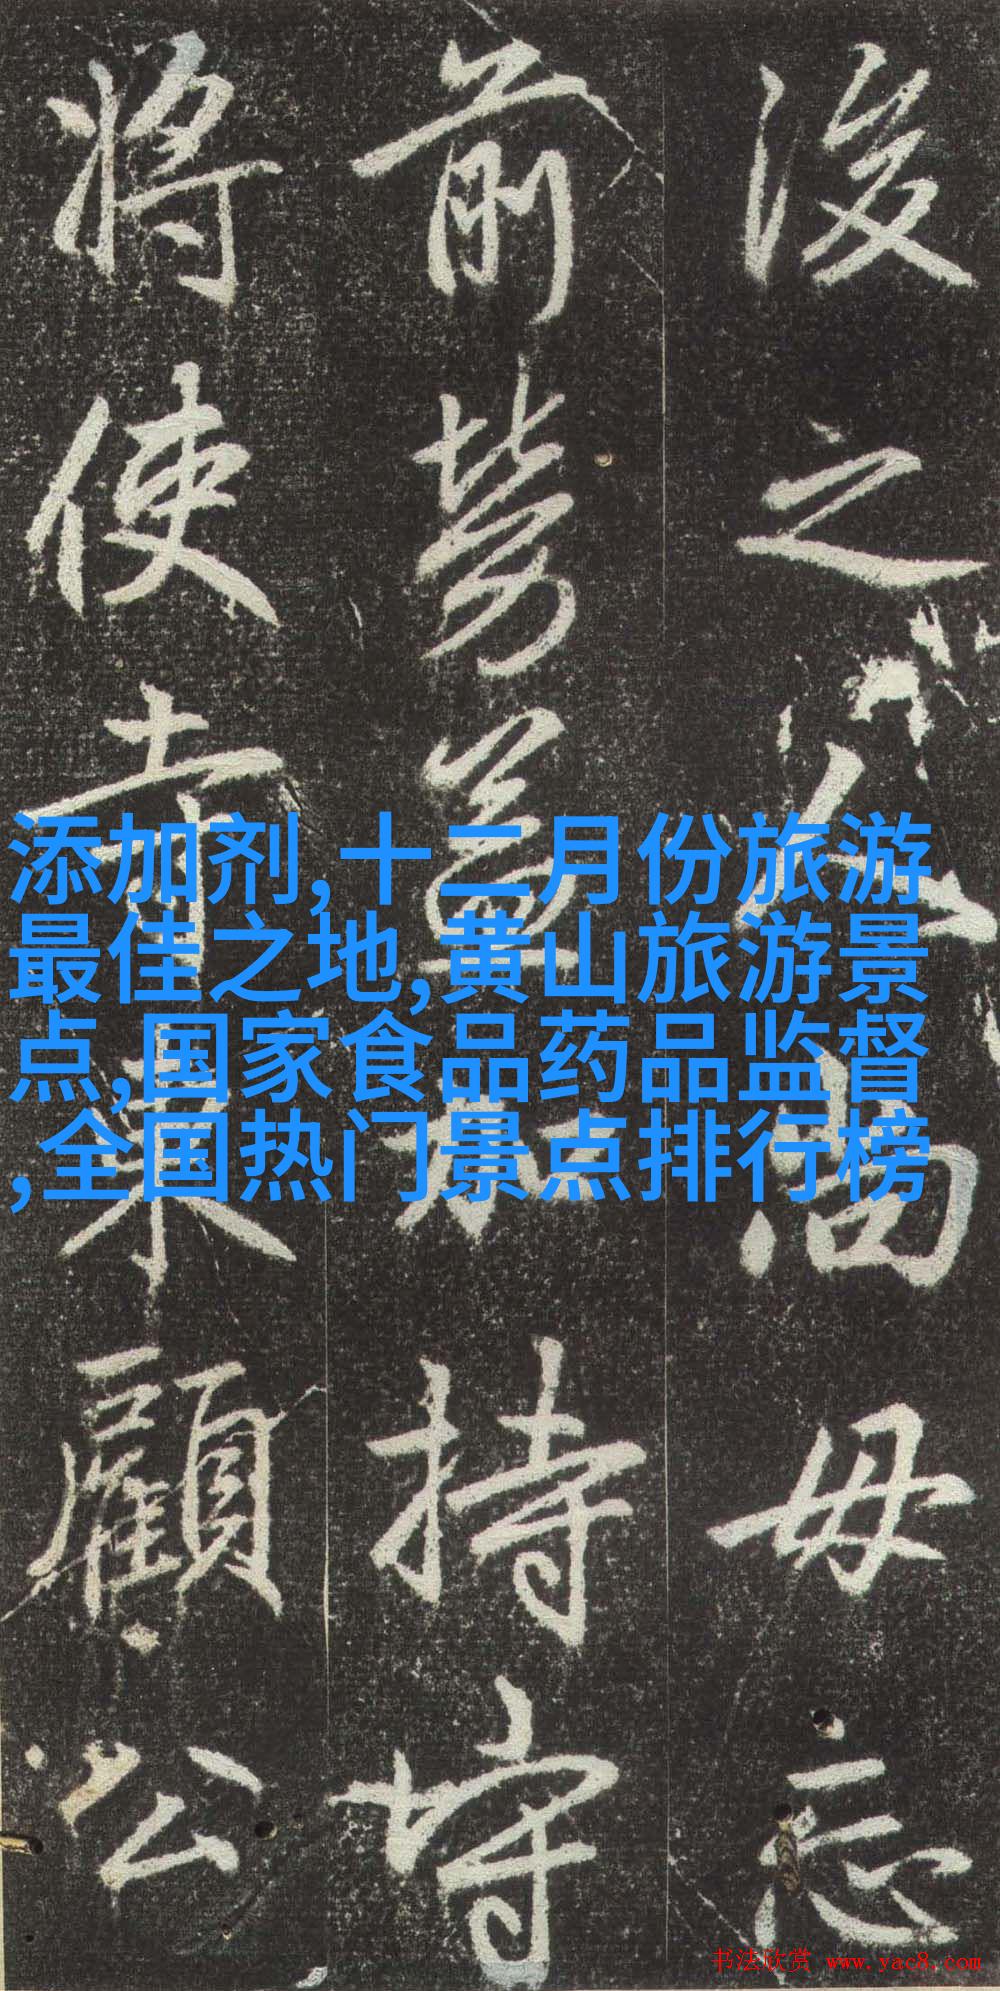 後之人尚毋忘
前勞益加持守
将使顧公
添加剂,十二月份旅游
最佳之地,黄山旅游景
点,国家食品药品监督
,全国热门景点排行榜
书法欣赏 www.yac8.com